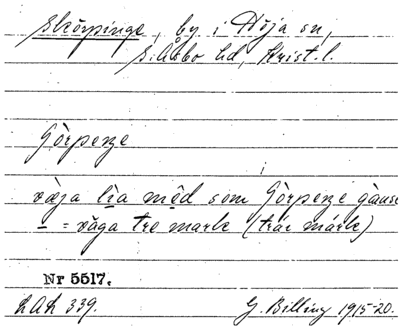 Skörpinge, by i Höja sn,
S. Åsbo hd, Krist. l.
Görpeze
väja lia mêd som Görpeze gàuse
= väga tre mark (trár márk)
Nr 5517.
LAL 339.
G. Billing 1915-20.